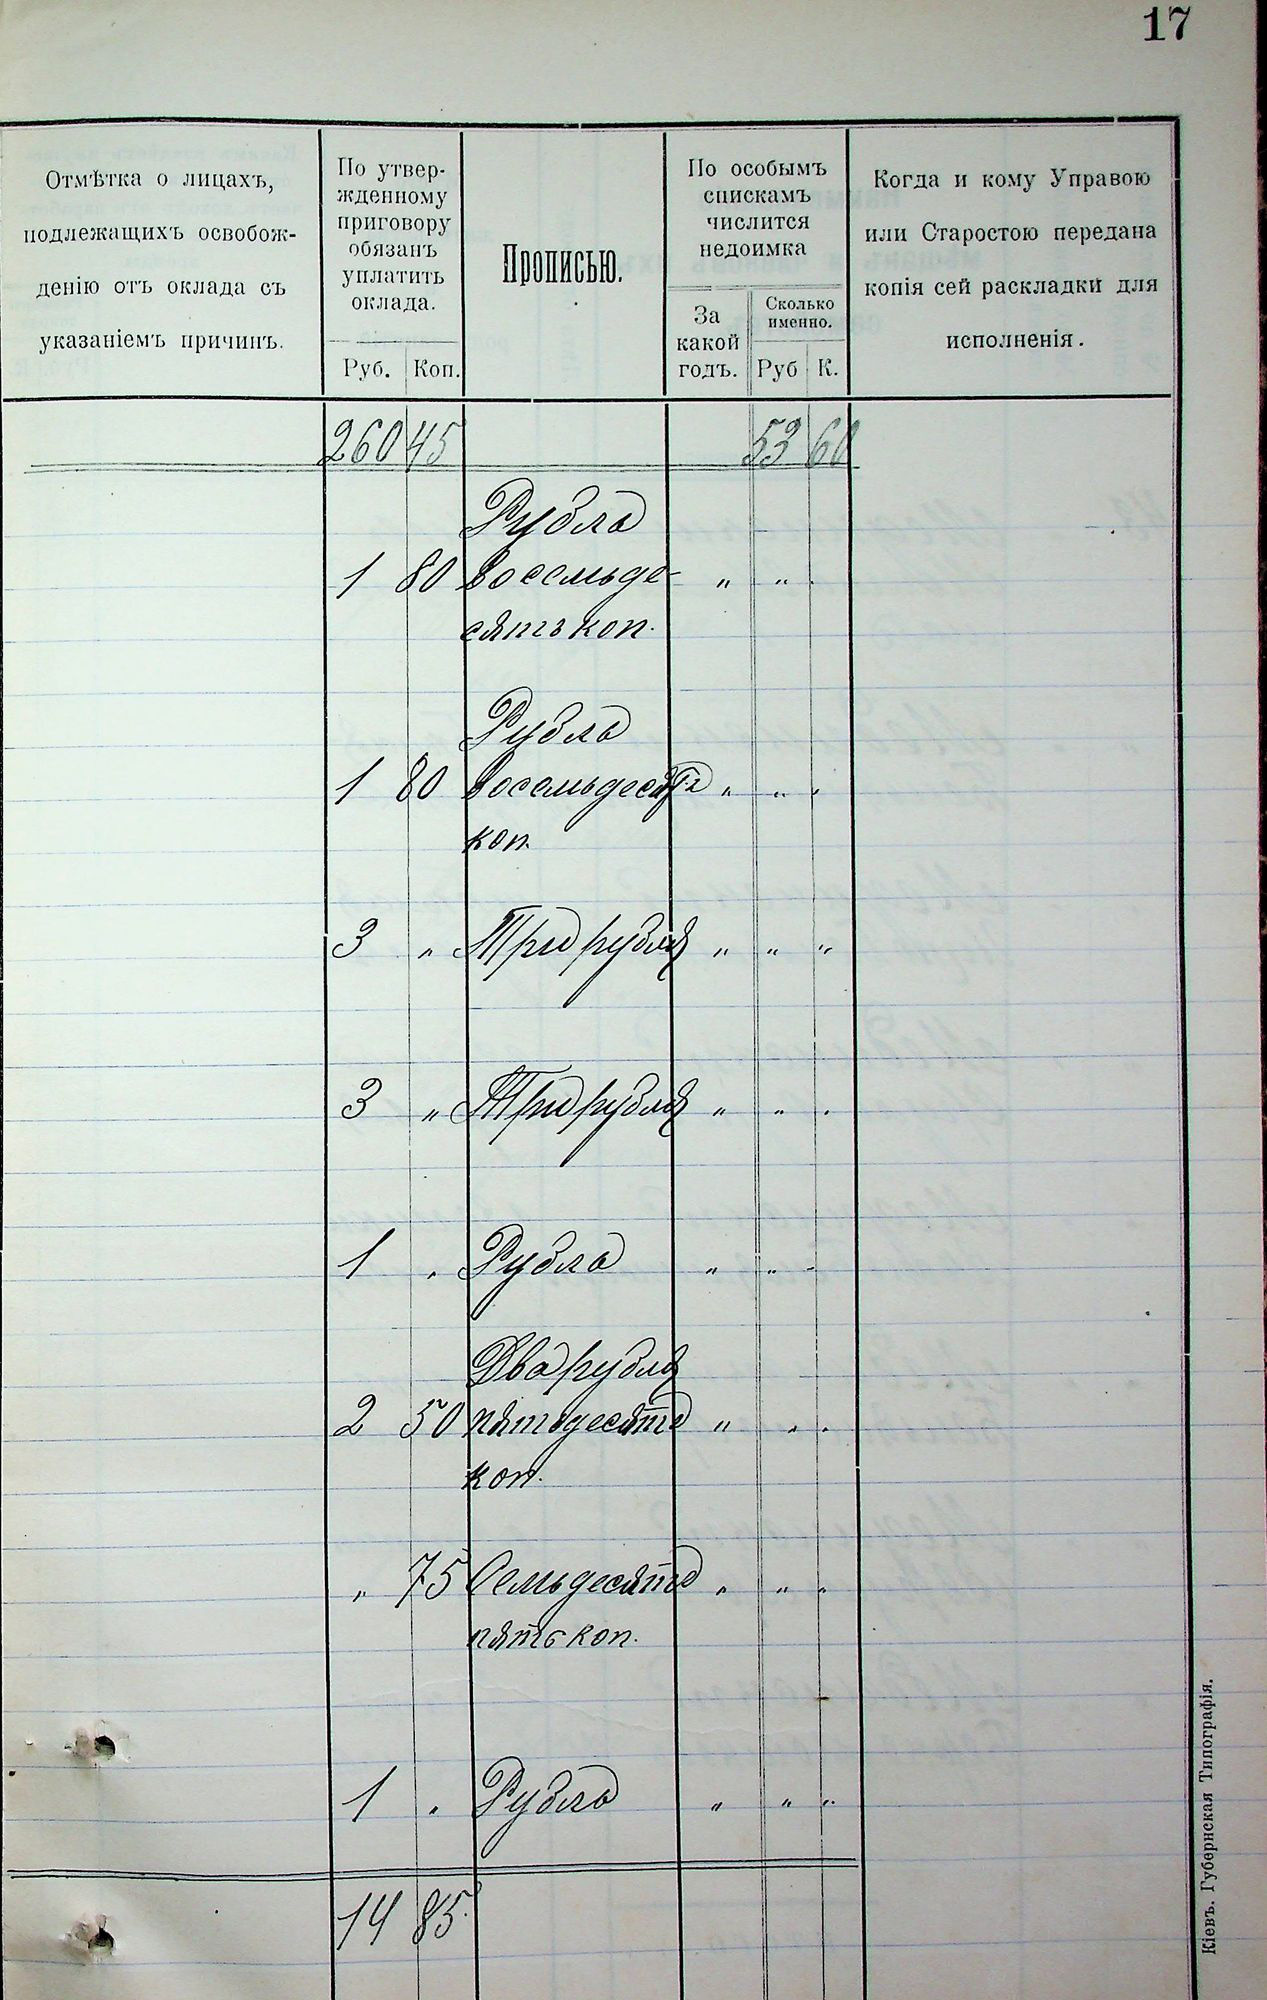 17
Отмѣтка о лицахъ,
подлежащихъ освобож-
денію отъ оклада съ
указаніемъ причинъ.
По утвер-
жденному
приговору
обязанъ
уплатить
оклада.
Руб. Коп.
Прописью.
По особымъ
спискамъ
числится
недоимка
За
какой
годъ.
Сколько
именно.
Руб К.
Когда и кому Управою
или Старостою передана
копія сей раскладки для
исполненія.
260 45 53 60
Рубль
1 80 восемьде- " "
сятъ коп.
Рубль
1 80 восемьдесятъ " " "
коп.
3 " Три рубля " " "
3 " Три рубля " " "
1 " Рубль " " "
Два рубля
2 50 пятьдесятъ " " "
коп.
" 75 Семьдесятъ " " "
пять коп.
1 " Рубль " " "
14 85.
Кіевъ. Губернская Типографія.